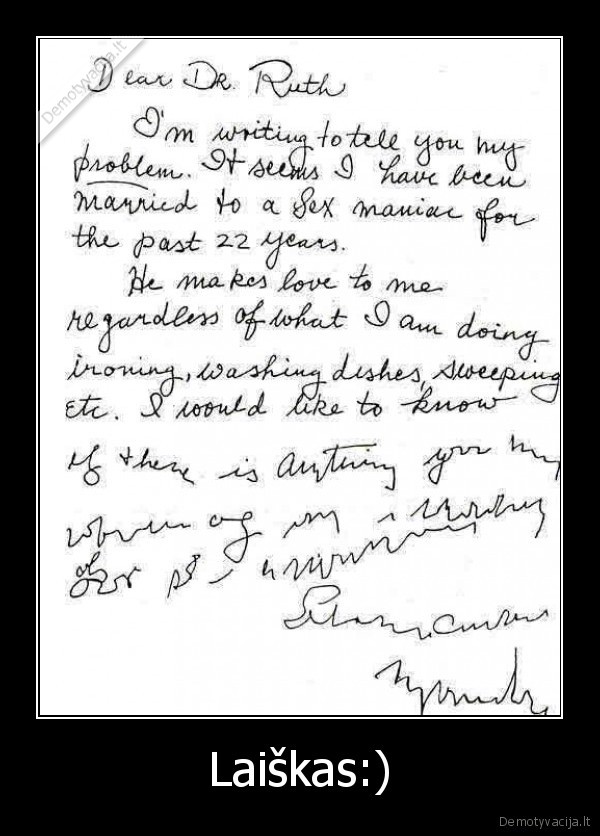 Demotyvacija.lt
Dear Dr. Ruth
I'm writing to tele you my
problem. It seems I have been
married to a Sex maniac for
the past 22 years.
He makes love to me
regardless of what I am doing
ironing, washing dishes, sweeping
Etc. I would like to know
if there is anything you my
Laiškas:)
Demotyvacija.lt